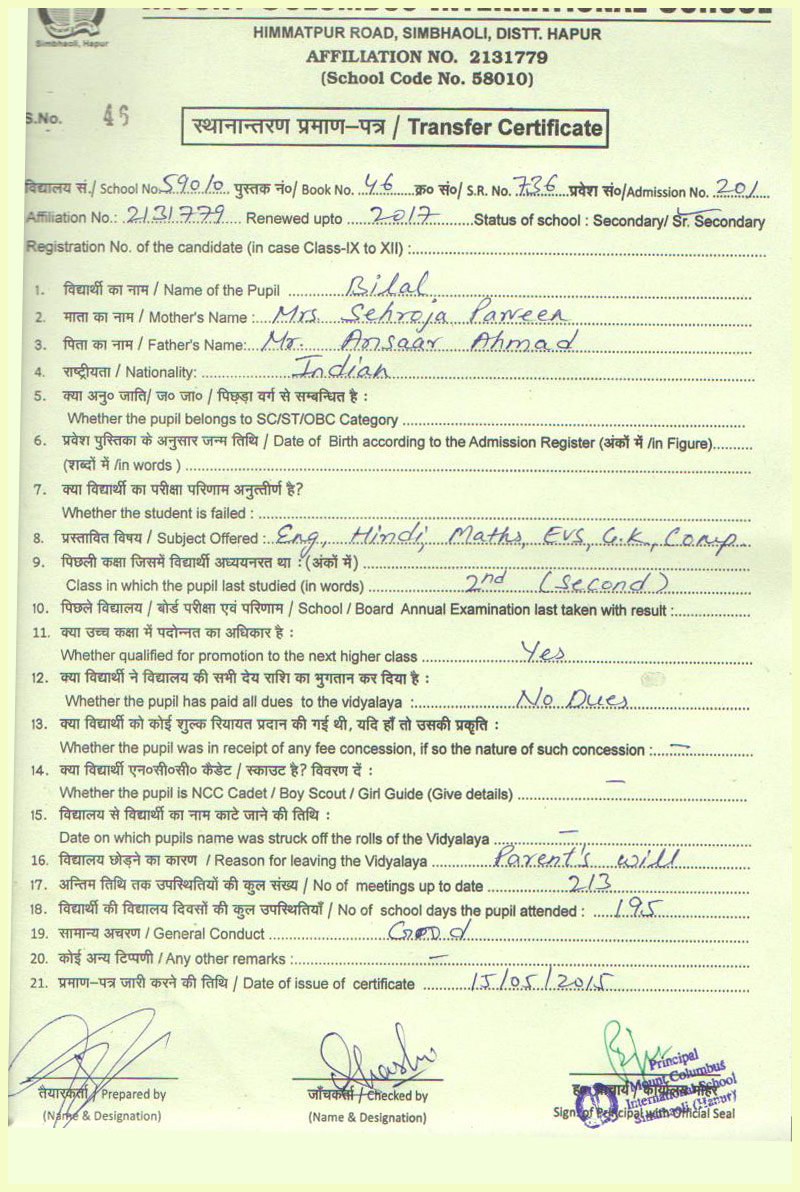 MOUNT COLUMBUS INTERNATIONAL SCHOOL
Simbhaoli, Hapur
HIMMATPUR ROAD, SIMBHAOLI, DISTT. HAPUR
AFFILIATION NO. 2131779
(School Code No. 58010)
S.No. 46
स्थानान्तरण प्रमाण–पत्र / Transfer Certificate
विद्यालय सं./ School No. 59010 पुस्तक नं०/ Book No. 46 क्र० सं०/ S.R. No. 736 प्रवेश सं०/Admission No. 201
Affiliation No.: 2131779 Renewed upto 2017 Status of school : Secondary/ Sr. Secondary
Registration No. of the candidate (in case Class-IX to XII) :
1. विद्यार्थी का नाम / Name of the Pupil Bilal
2. माता का नाम / Mother's Name : Mrs. Sehroja Parveen
3. पिता का नाम / Father's Name: Mr. Ansaar Ahmad
4. राष्ट्रीयता / Nationality: Indian
5. क्या अनु० जाति/ ज० जा० / पिछड़ा वर्ग से सम्बन्धित है :
Whether the pupil belongs to SC/ST/OBC Category
6. प्रवेश पुस्तिका के अनुसार जन्म तिथि / Date of Birth according to the Admission Register (अंकों में /in Figure)
(शब्दों में /in words )
7. क्या विद्यार्थी का परीक्षा परिणाम अनुत्तीर्ण है?
Whether the student is failed :
8. प्रस्तावित विषय / Subject Offered : Eng, Hindi, Maths, EVS, G.K., Comp.
9. पिछली कक्षा जिसमें विद्यार्थी अध्ययनरत था : (अंकों में)
Class in which the pupil last studied (in words) 2nd (Second)
10. पिछले विद्यालय / बोर्ड परीक्षा एवं परिणाम / School / Board Annual Examination last taken with result :
11. क्या उच्च कक्षा में पदोन्नत का अधिकार है :
Whether qualified for promotion to the next higher class Yes
12. क्या विद्यार्थी ने विद्यालय की सभी देय राशि का भुगतान कर दिया है :
Whether the pupil has paid all dues to the vidyalaya : No Dues
13. क्या विद्यार्थी को कोई शुल्क रियायत प्रदान की गई थी, यदि हाँ तो उसकी प्रकृति :
Whether the pupil was in receipt of any fee concession, if so the nature of such concession : —
14. क्या विद्यार्थी एन०सी०सी० कैडेट / स्काउट है? विवरण दें :
Whether the pupil is NCC Cadet / Boy Scout / Girl Guide (Give details) —
15. विद्यालय से विद्यार्थी का नाम काटे जाने की तिथि :
Date on which pupils name was struck off the rolls of the Vidyalaya —
16. विद्यालय छोड़ने का कारण / Reason for leaving the Vidyalaya Parent's will
17. अन्तिम तिथि तक उपस्थितियों की कुल संख्या / No of meetings up to date 213
18. विद्यार्थी की विद्यालय दिवसों की कुल उपस्थितियाँ / No of school days the pupil attended : 195
19. सामान्य अचरण / General Conduct Good
20. कोई अन्य टिप्पणी / Any other remarks : —
21. प्रमाण–पत्र जारी करने की तिथि / Date of issue of certificate 15/05/2015
तैयारकर्ता / Prepared by
(Name & Designation)
जाँचकर्ता / Checked by
(Name & Designation)
Principal
Mount Columbus
International School
Simbhaoli (Hapur)
कार्यालय मोहर
Sign. of Principal with Official Seal